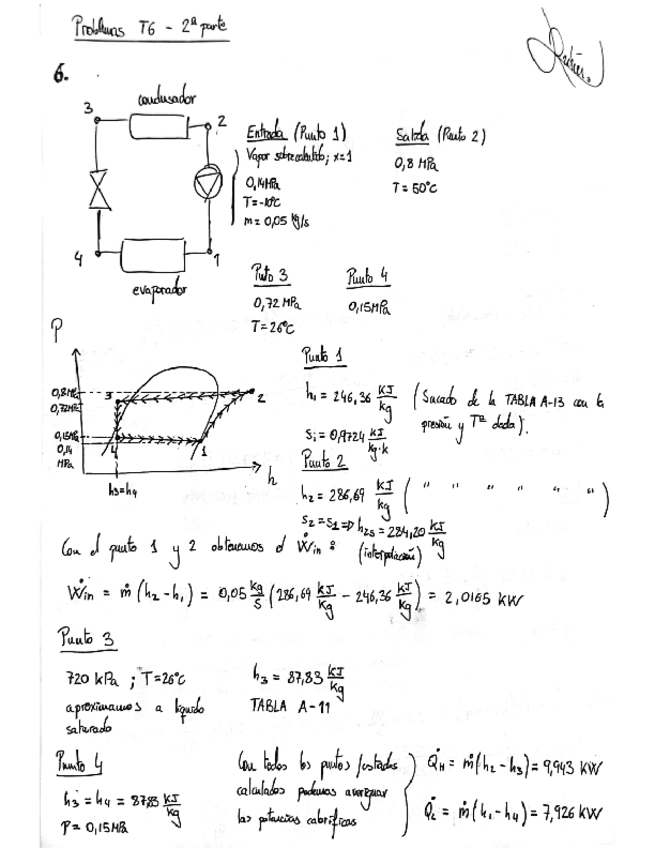 Problemas T6 - 2ª parte
6.
condensador
3
2
4
1
evaporador
Entrada (Punto 1)
Vapor sobrecalentado; x=1
0,14MPa
T=-10ºC
m= 0,05 kg/s
Salida (Punto 2)
0,8 MPa
T= 50ºC
Punto 3
0,72 MPa
T=26ºC
Punto 4
0,15MPa
P
0,8MPa
0,72MPa
0,15MPa
0,14
MPa
3
2
4
1
h
h3=h4
Punto 1
h1 = 246,36 KJ/kg (Sacado de la TABLA A-13 con la
presión y Tª dada).
S1= 0,9724 KJ/kg·k
Punto 2
h2 = 286,69 KJ/kg ( " " " " " " )
S2=S1 => h2s = 284,20 KJ/Kg
(interpolación)
Con el punto 1 y 2 obtenemos el Ẇin :
Ẇin = ṁ (h2-h1) = 0,05 kg/s (286,69 KJ/Kg - 246,36 KJ/Kg) = 2,0165 KW
Punto 3
720 kPa ; T=26ºC
aproximamos a líquido
saturado
h3 = 87,83 KJ/Kg
TABLA A-11
Punto 4
h3 = h4 = 87,83 KJ/kg
P= 0,15MPa
Con todos los puntos/estados
calculados podemos averiguar
las potencias caloríficas
Q̇H = ṁ(h2-h3) = 9,943 KW
Q̇L = ṁ(h1-h4) = 7,926 KW